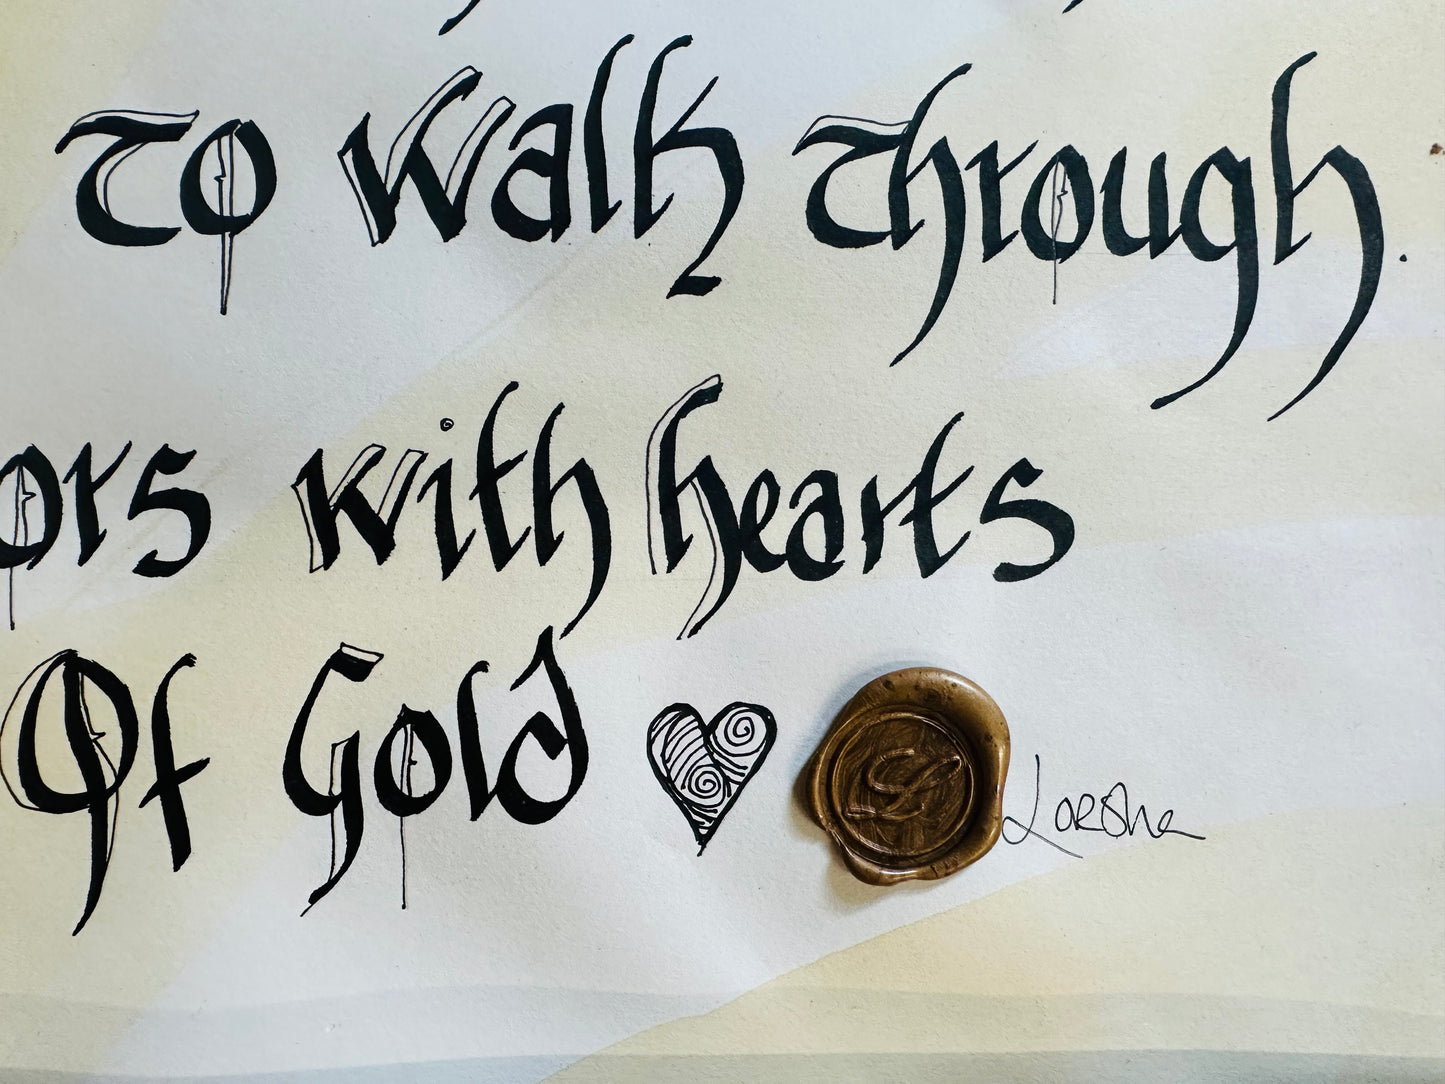 To Walk Through.
ors with hearts
Of Gold
L
Lorsha